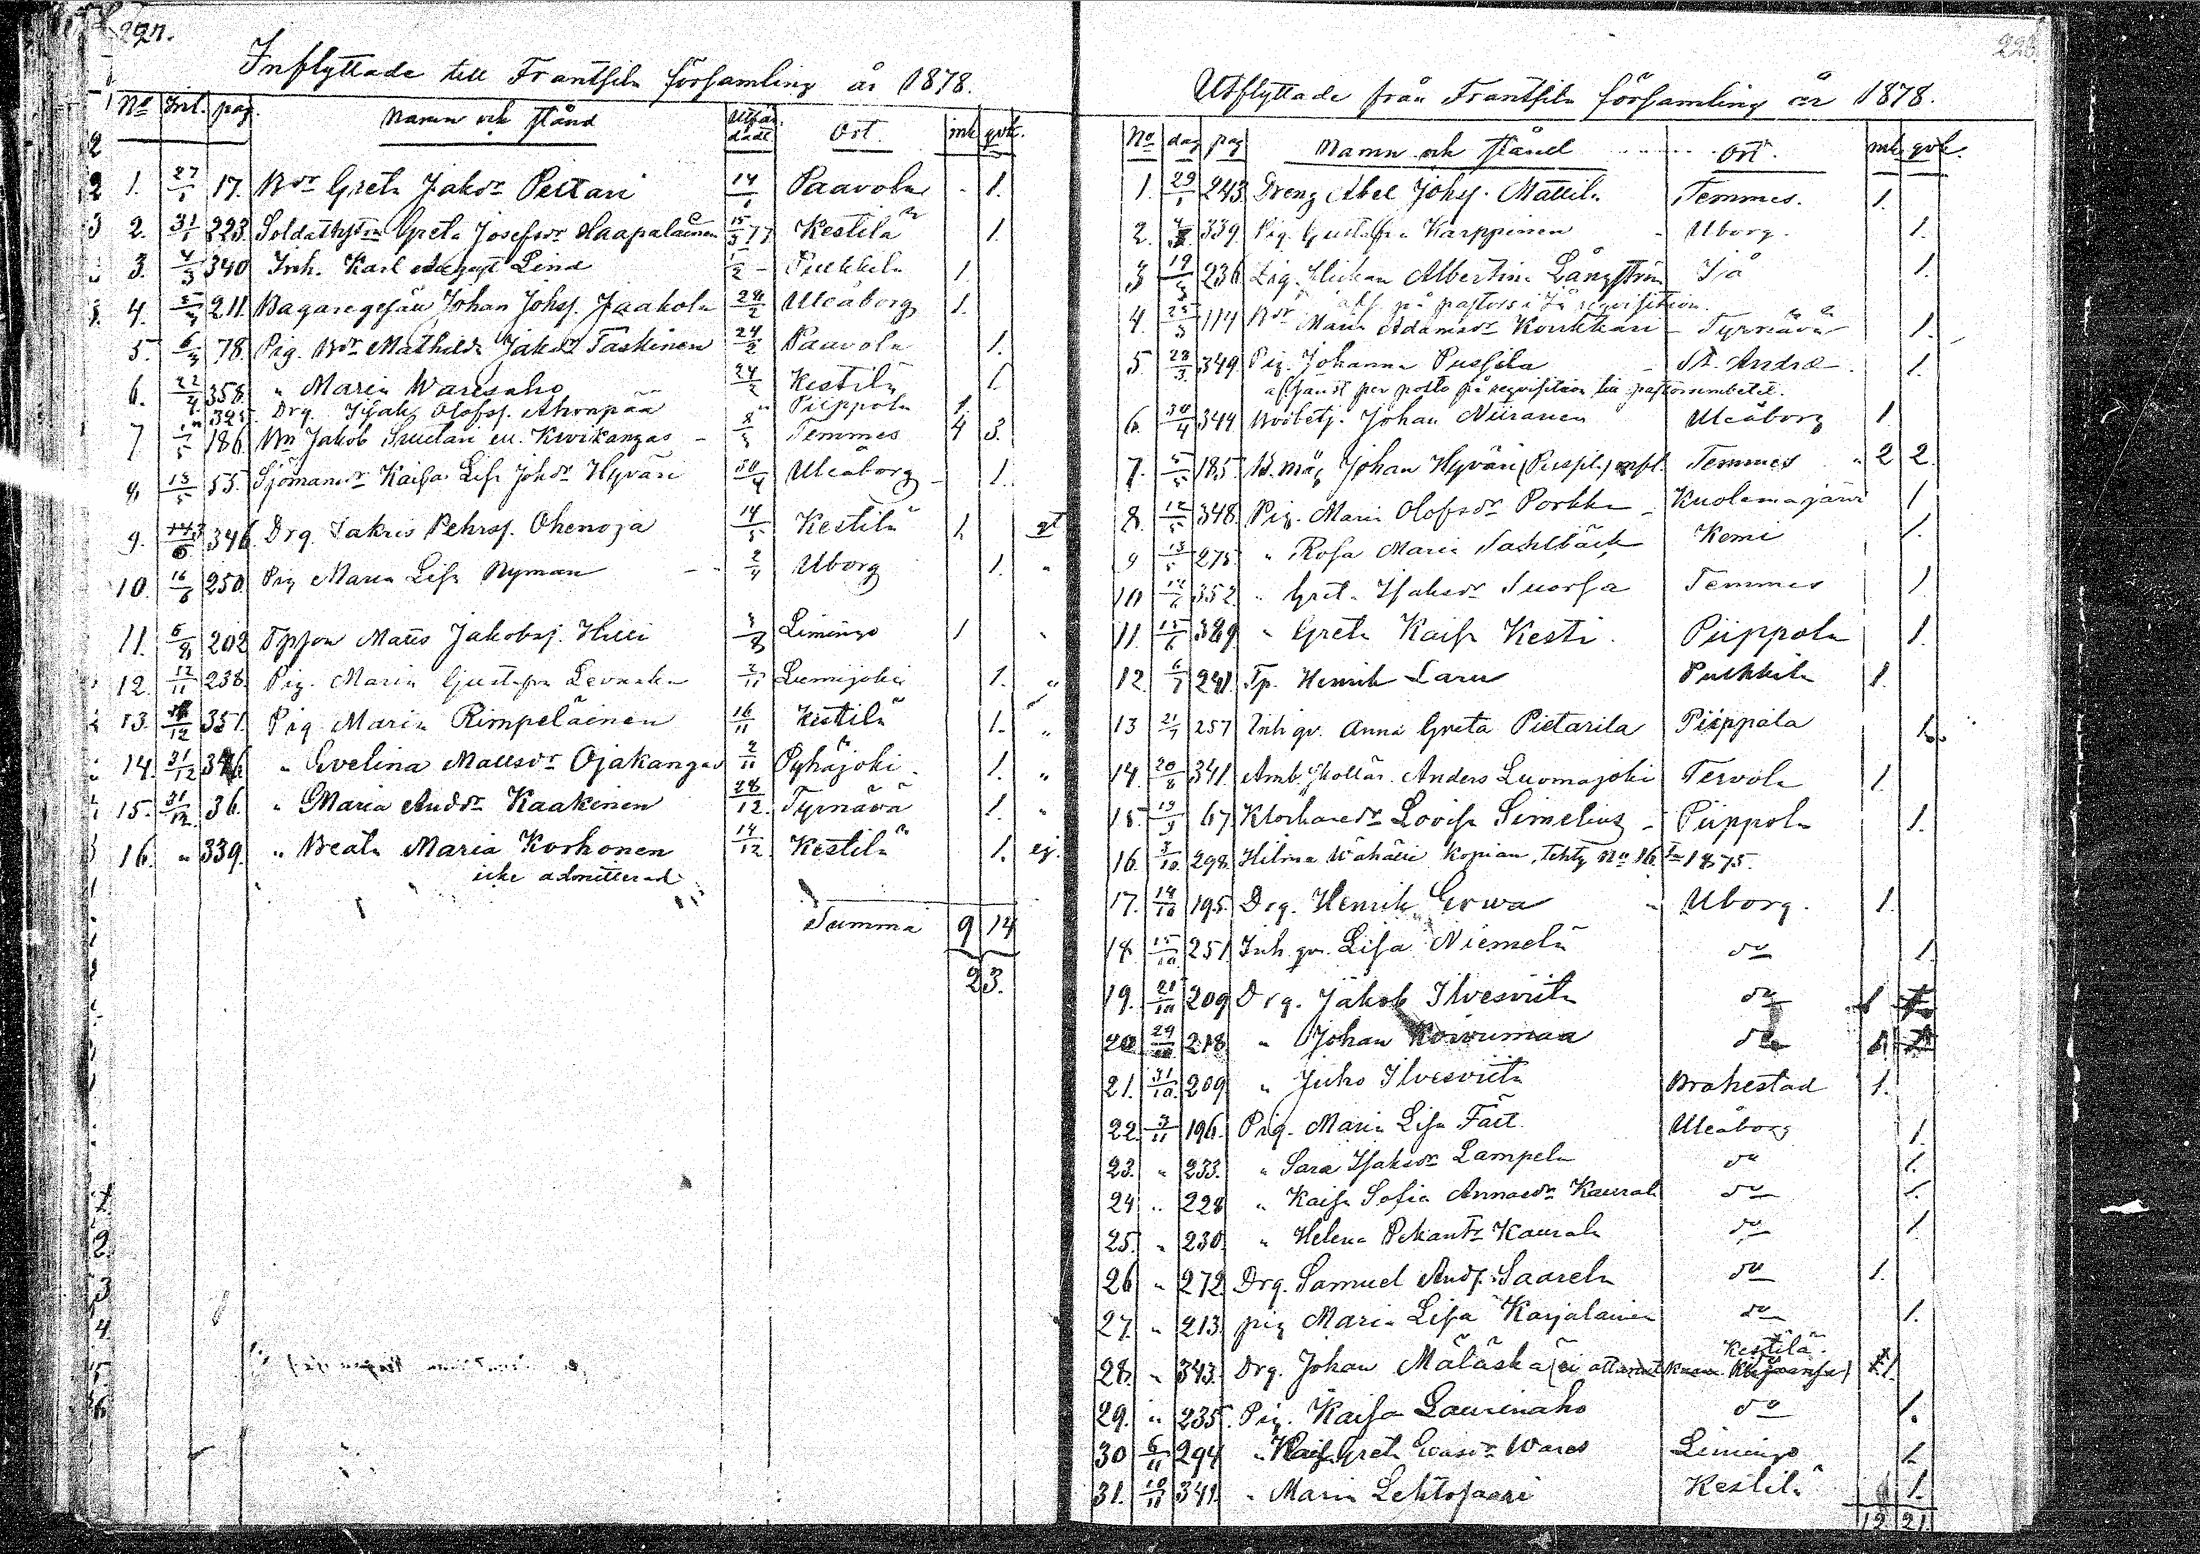 227.
Inflyttade till Frantsila församling år 1878.
No Inl. pag. Namn och stånd Utfärdadt Ort. mk qvk.
1. 27/1 17. Bdr Greta Jaksdr Pettari 14/1 Paavola - 1.
2. 31/1 223. Soldathustrn Greta Josefsdr Haapalainen 15/3 77 Kestilä 1.
3. 4/3 340 Inh. Karl August Lind 1/2 - Pulkkila 1.
4. 211. Bagaregesäll Johan Johsf. Jaakola 28/2 Uleåborg 1.
5. 78. Pig. Bdr Mathilda Jaksdr Taskinen 24/2 Paavola 1.
6. 22/4 358. " Maria Waresaho 24/2 Kestilä 1.
325. Drg Isak Olofsf. Ahonpää Piippola 1.
7 186. Jakob Kivikangas - Temmes 4 3.
8. 13/5 55. Sjömansdr Kaisa Lisa Johdr Hyväri 30/4 Uleåborg - 1.
9. 346. Drg. Zakris Pehrsf. Ohenoja 14/5 Kestilä 1.
10. 16/6 250. Pig Maria Lisa Nyman 2/4 Uborg 1. "
11. 6/8 202 Matts Jakobsf. Hilli 3/8 Limingo 1 "
12. 12/11 238. Pig. Maria Gustafva 2/11 Lumijoki 1. "
13. 351. Pig. Maria Rimpeläinen 16/11 Kestilä 1. "
14. 31/12 346 " Evelina Mattsdr Ojakangas 2/11 Pyhäjoki. 1. "
15. 31/12. 36. " Maria Andsdr Kaakinen 28/12. Tyrnävä 1. "
16. " 339. " Beata Maria Korhonen 14/12 Kestilä 1. ej.
icke admitterad
Summa 9 14
23.
228.
Utflyttade från Frantsila församling år 1878.
No dag pag Namn och stånd Ort. mk qvk.
1. 29/1 243. Dreng Abel Johsf. Mattila Temmes. 1.
2. 339. Pig. Gustafva Karppinen Uborg. 1.
3 19/3 236 Albertina Långström Ijå 1.
på pastors i Ijå reqvisition.
4. 25/3 114 Bdr Maria Adamsdr Konkkari - Tyrnävä 1.
5 28/3. 349. Pig. Johanna Pussila St. Andrae - 1.
afsändt per posto på reqvisition till pastorsembetet.
6. 30/4 344 Johan Niiranen Uleåborg 1.
7. 5/5 185. Johan Hyväri Temmes 2 2.
8. 12/5 348. Pig. Maria Olofsdr Porkka - Kuolemajärvi 1
9 13/5 275. " Rosa Maria Sahlbäck Kemi 1.
10 352. " Greta Isaksdr Suorsa Temmes 1
11. 15/6 329. " Greta Kaisa Kesti. Piippola 1.
12. 6/7 241. Tp. Henrik Laru Pulkkila 1.
13 21/7 257 Inh. qv. Anna Greta Pietarila Piippola 1.
14. 20/8 341. Anders Luomajoki Tervola 1.
15. 13/9 67 Klockaredr Lovisa Simelius - Piippola 1.
16. 3/10 298. Hilma Wähälä Kopian, No 16. 1875.
17. 14/10 195. Drg. Henrik Erwa Uborg. 1.
18. 15/10. 251 Inh. qv. Lisa Niemelä do 1.
19. 209 Drg. Jakob Ilvesviita do 1
20. 29/10 218. " Johan Koivumaa do 1.
21. 31/10. 209. " Juho Ilvesviita Brahestad 1.
22. 2/11 196. Pig. Maria Lisa Fält. Uleåborg 1.
23. " 233. " Sara Isaksdr Lampela do 1.
24 " 228 " Kaisa Sofia Annasdr Kaurala do 1.
25. " 230. " Helena Kaurala do 1
26 " 272. Drg. Samuel Andsf. Saarela do 1.
27. " 213. pig Maria Lisa Karjalainen do 1.
28. " 343. Drg. Johan Mäläskä Kestilä. 1.
29. " 235. Pig. Kaisa Laurinaho do 1.
30 6/11 294 " Kaisa Greta Evasdr Wares Limingo 1.
31. 10/11 341. " Maria Lehtosaari Kestilä 1.
12 21.